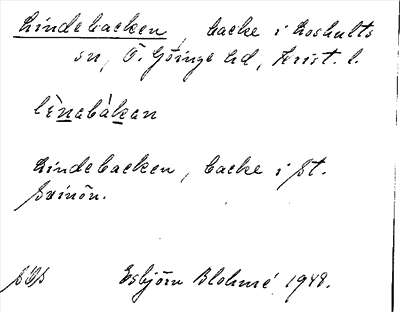 Lindebacken, backe i Loshults
sn, Ö. Göinge hd, Krist. l.
lìnabàkan
Lindebacken, backe i St.
Svinön.
Esbjörn Blohmé 1948.